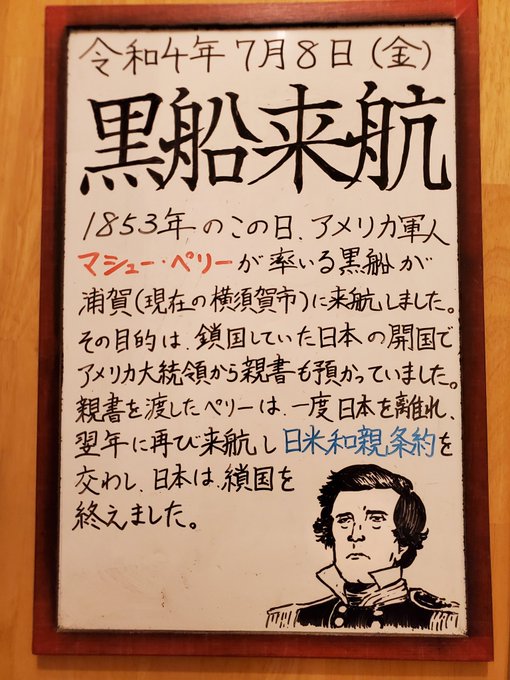 令和4年7月8日(金)
黒船来航
1853年のこの日、アメリカ軍人
マシュー・ペリーが率いる黒船が
浦賀(現在の横須賀市)に来航しました。
その目的は、鎖国していた日本の開国で
アメリカ大統領から親書も預かっていました。
親書を渡したペリーは、一度日本を離れ、
翌年に再び来航し日米和親条約を
交わし、日本は、鎖国を
終えました。